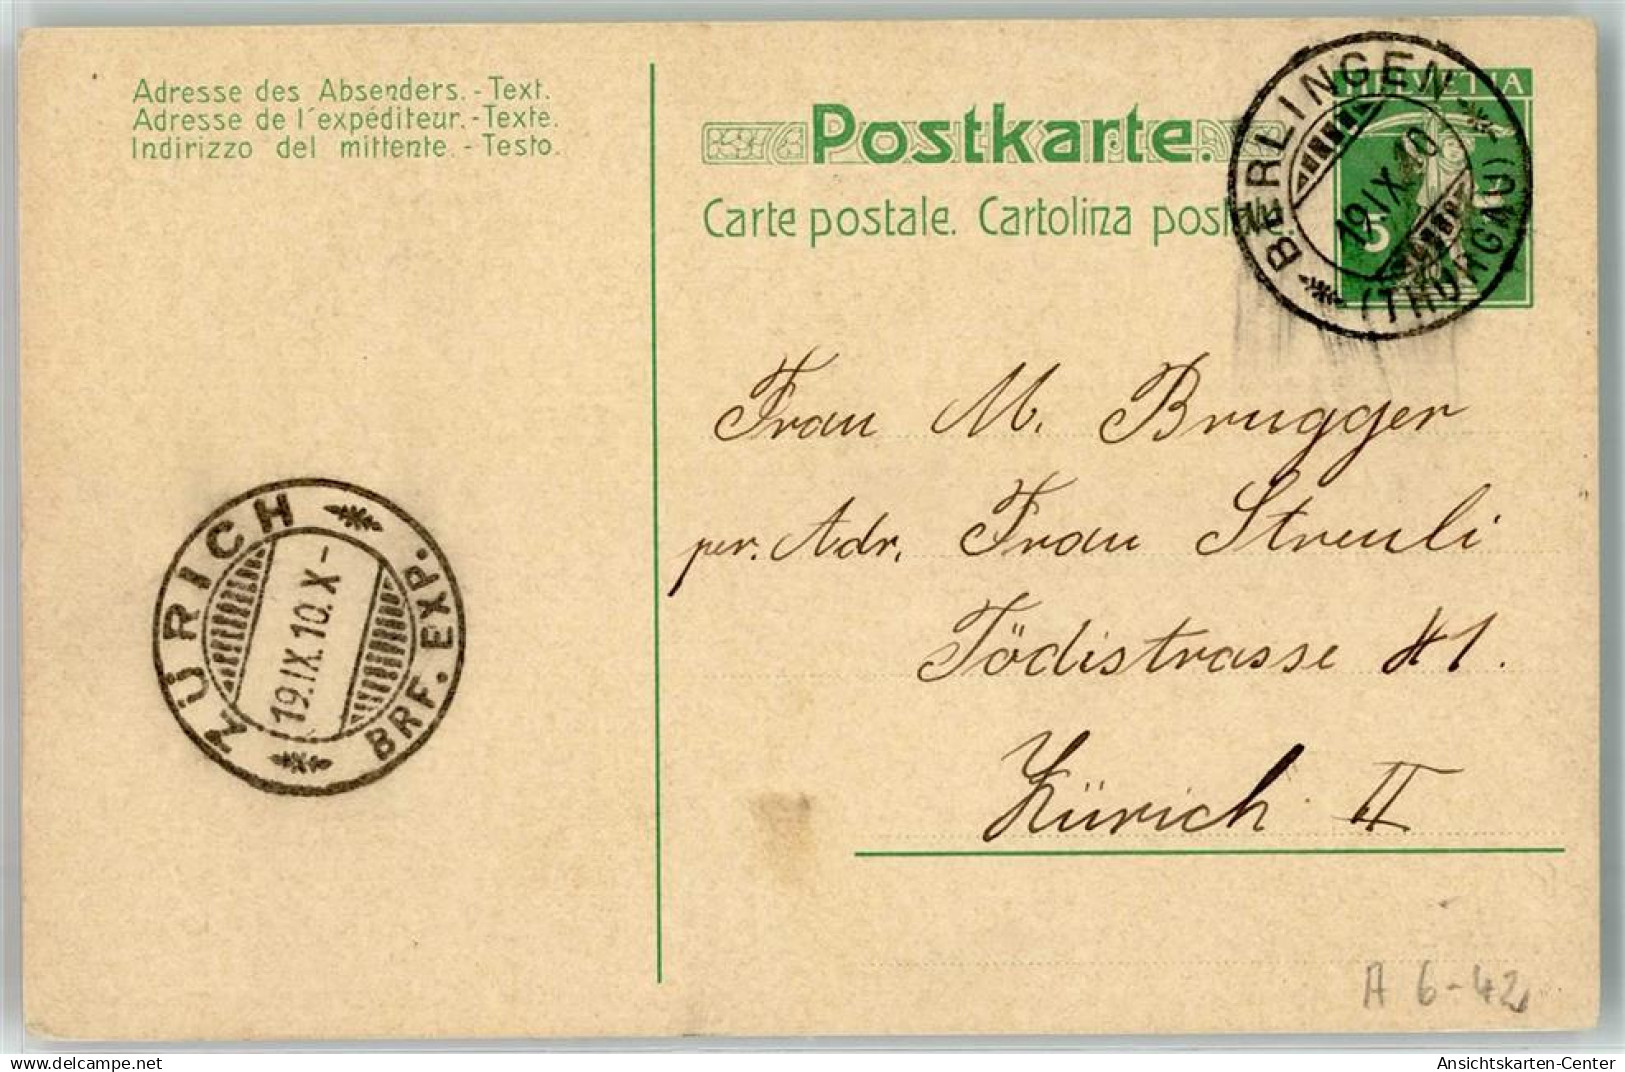 Adresse des Absenders. - Text.
Adresse de l'expéditeur. - Texte.
Indirizzo del mittente. - Testo.
Postkarte.
Carte postale. Cartolina post
HELVETIA
5
BERLINGEN
19.IX.10
(THURGAU)
Frau M. Brugger
per. Adr. Frau Streuli
Tödistrasse 41.
Zürich II
ZÜRICH
19.IX.10.X-
BRF. EXP.
A 6-42
delcampe.net
Ansichtskarten-Center